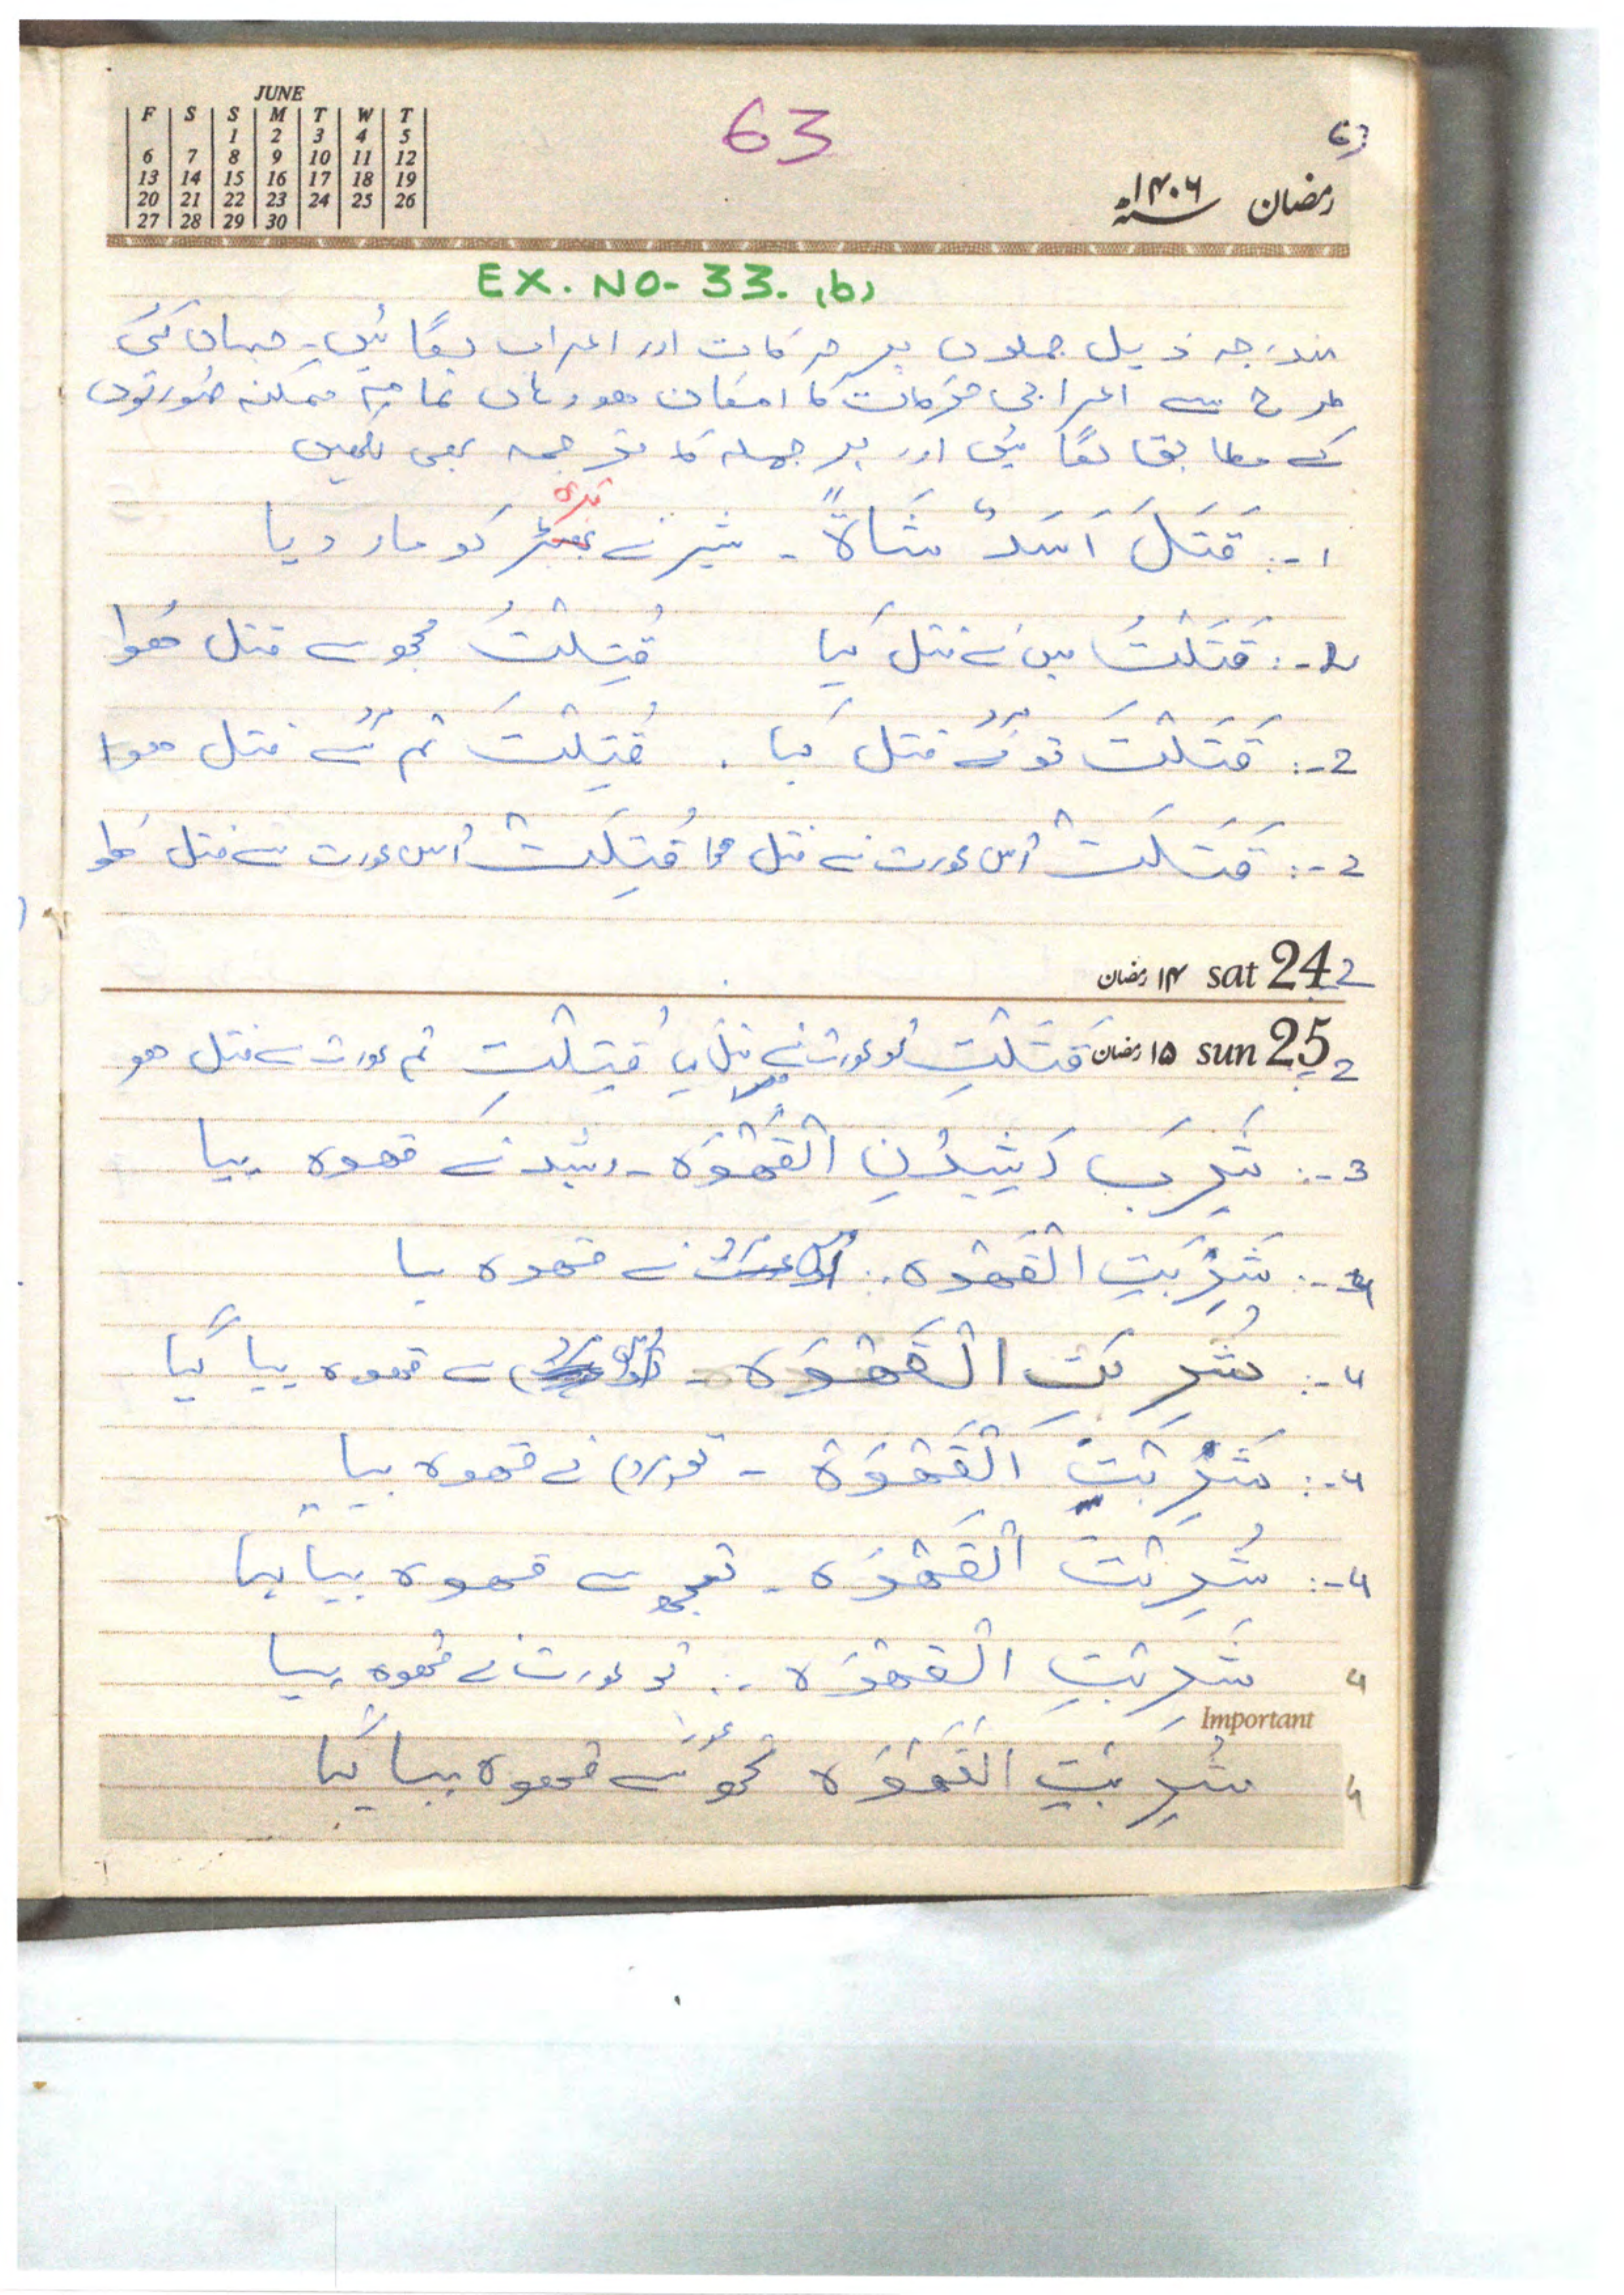 JUNE
F S S M T W T
1 2 3 4 5
6 7 8 9 10 11 12
13 14 15 16 17 18 19
20 21 22 23 24 25 26
27 28 29 30
63
63
رمضان ۱۴۰۶
EX. NO- 33. (b)
مندرجہ ذیل جملوں پر حرکات اور اعراب لگائیں۔ جہاں کئی
طرح سے اعرابی حرکات کا امکان ھو وہاں تمام ممکنہ صورتوں
کے مطابق لگائیں اور ہر جملہ کا ترجمہ بھی لکھیں
۱-: قَتَلَ اَسَدٌ شَاةً - شیر نے بکری کو مار دیا
2-: قَتَلْتُ میں نے قتل کیا قُتِلْتُ مجھ سے قتل ھوا
2-: قَتَلْتَ تو مرد نے قتل کیا . قُتِلْتَ تم مرد سے قتل ھوا
2-: قَتَلَتْ اُس عورت نے قتل کیا قُتِلَتْ اُس عورت سے قتل ھوا
۱۴ رمضان sat 24
۱۵ رمضان sun 25
2 قَتَلْتِ تو عورت نے قتل کیا قُتِلْتِ تم عورت سے قتل ھو
3-: شَرِبَ رَشِیْدُنِ الْقَهْوَه - رشید نے قهوه پیا
4-: شَرِبَتِ الْقَهْوَه نے قهوه پیا
4-: شُرِبَتِ الْقَهْوَه - سے قهوه پیا گیا
4-: شَرِبْتَ الْقَهْوَة - تو (مرد) نے قهوه پیا
4-: شُرِبْتَ الْقَهْوَه - تجھ سے قهوه پیا گیا
4 شَرِبْتِ الْقَهْوَه -: تو عورت نے قهوه پیا
Important
4 شُرِبْتِ الْقَهْوَه تجھ عورت سے قهوه پیا گیا